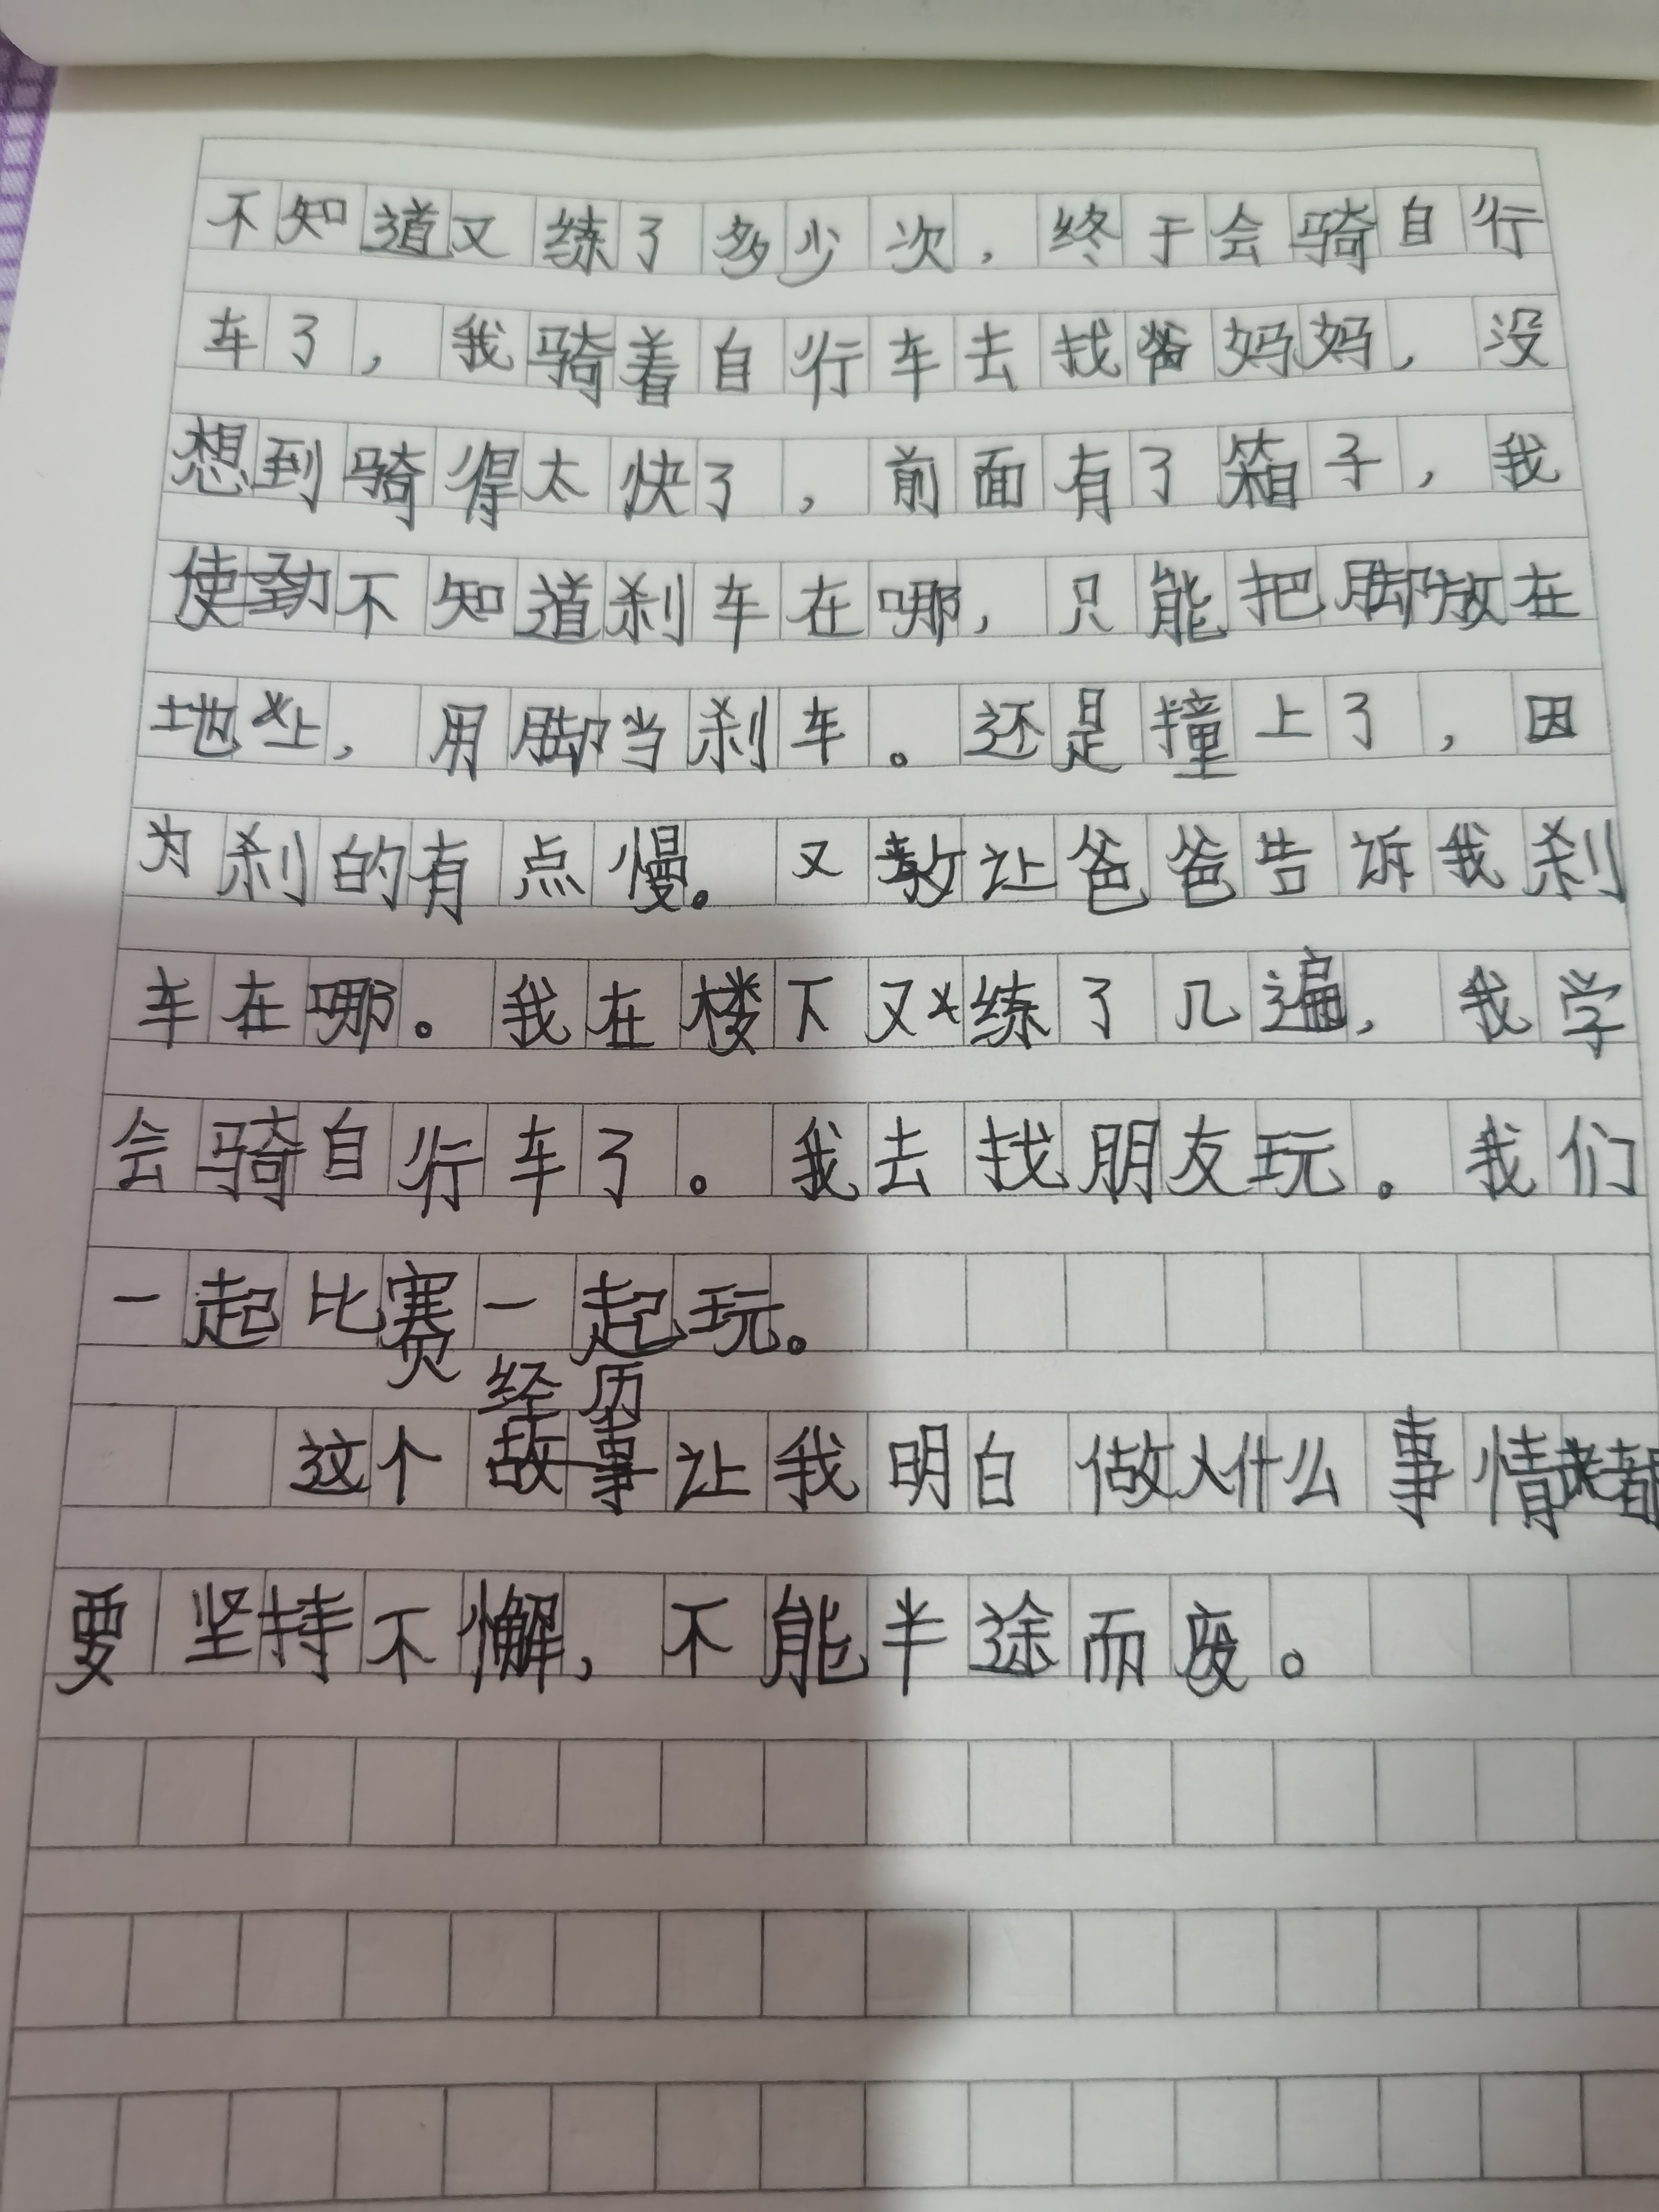 不知道又练了多少次，终于会骑自行
车了，我骑着自行车去找妈妈，没
想到骑得太快了，前面有了箱子，我
不知道刹车在哪，只能把脚放在
地上，用脚当刹车。还是撞上了，因
为刹的有点慢。又让爸爸告诉我刹
车在哪。我在楼下又练了几遍，我学
会骑自行车了。我去找朋友玩。我们
一起比赛一起玩。
经历
这个故事让我明白做什么事情都
要坚持不懈，不能半途而废。